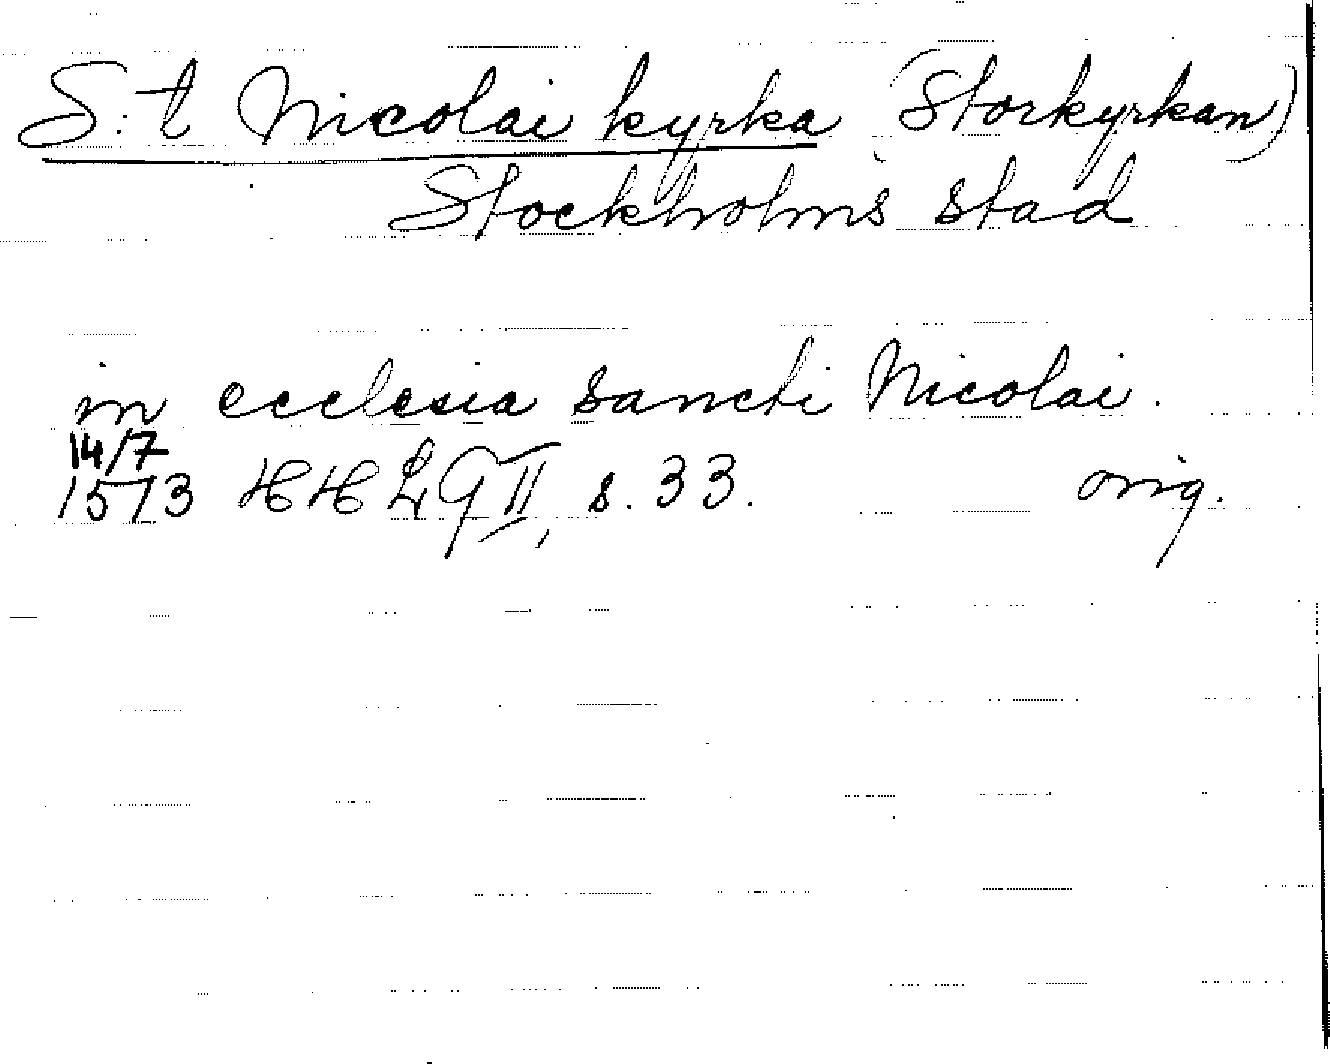 S:t Nicolai kyrka (Storkyrkan)
Stockholms stad
in ecclesia sancti Nicolai.
14/7
1513 HHLG II, s. 33. orig.